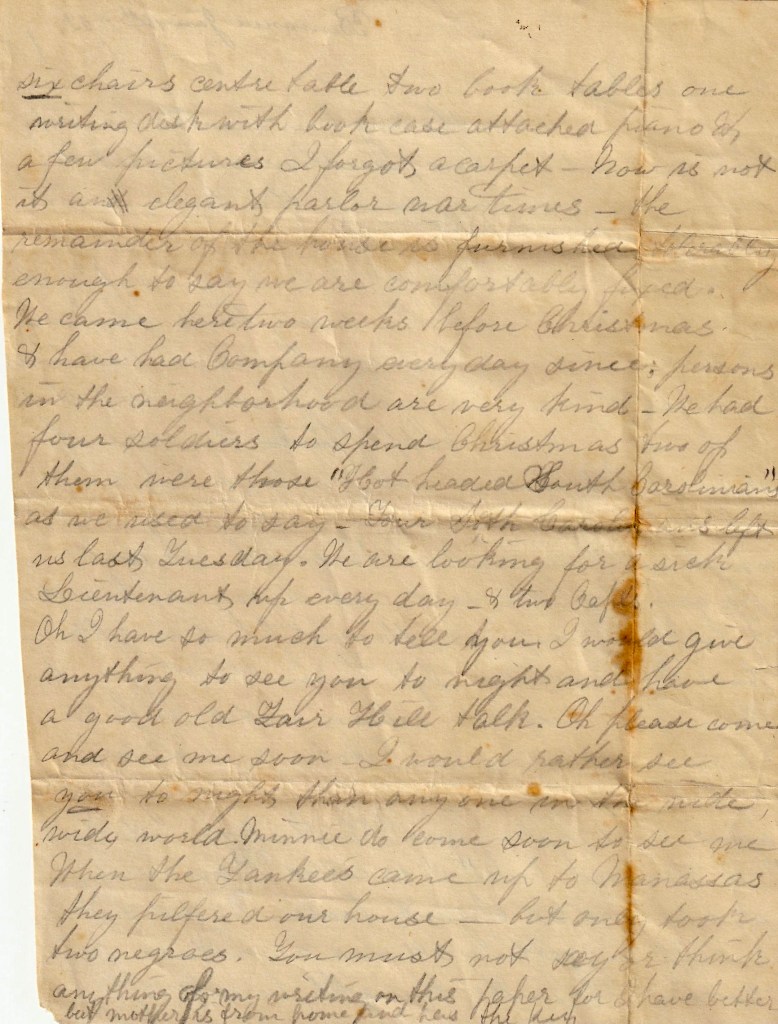 six chairs centre table two book tables one
writing desk with book case attached piano &
a few pictures I forgot a carpet - Now is not
it an elegant parlor war times - the
remainder of the house is furnished
enough to say we are comfortably fixed.
We came here two weeks before Christmas
& have had Company every day since; persons
in the neighborhood are very kind - We had
four soldiers to spend Christmas two of
them were those "Hot headed South Carolinian"
as we used to say - Four left
us last Tuesday. We are looking for a sick
Lieutenant up every day - & two Capts.
Oh I have so much to tell you. I would give
anything to see you to night and have
a good old Fair Hill talk. Oh please come
and see me soon - I would rather see
you to night than any one in the wide,
wide world. Minnie do come soon to see me
When the Yankees came up to Manassas
they pilfered our house - but only took
two negroes. You must not say or think
anything of my writing on this paper for I have better
but mother is from home and has the key